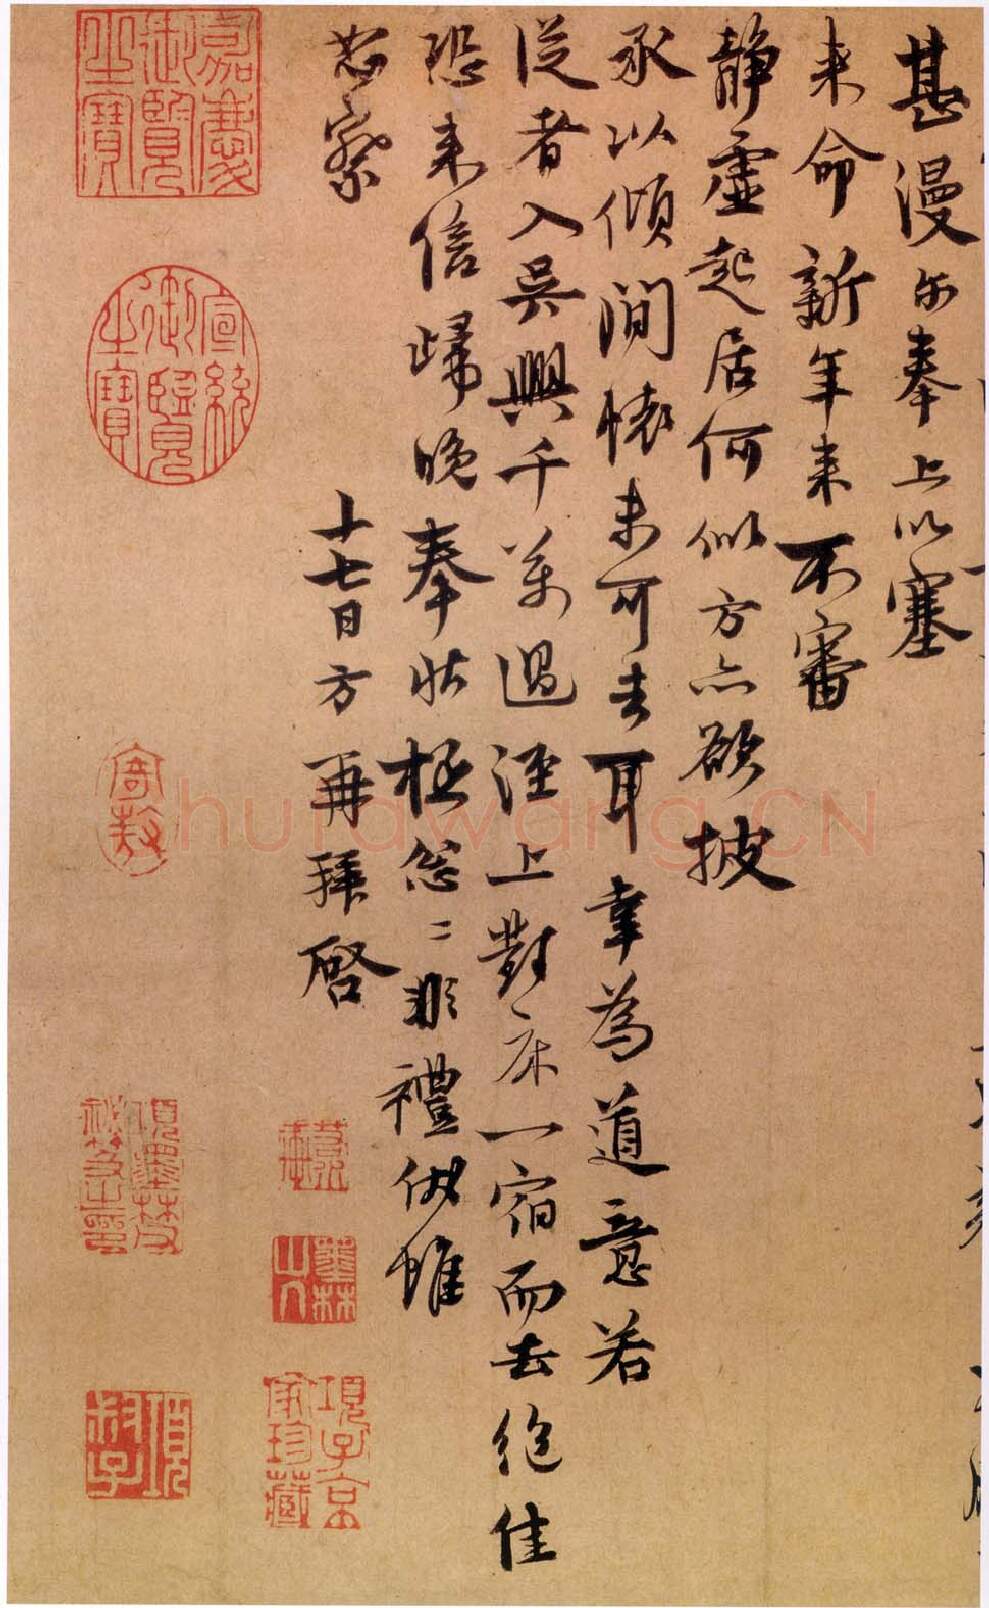 甚漫尔奉上以塞
来命新年来不審
静虚起居何似方亦欲披
承以傾澗懐未可去耳幸為道意若
従者入吳興千萬過涇上對床一宿而去絶佳
恐来信歸晚奉状極怱〻非禮仰惟
忠察
十七日方再拜啓
嘉慶御覧之寶
宣統御覧之寶
寄敖
項墨林父秘笈之印
墨林山人
項子京家珍藏
hufawang.CN